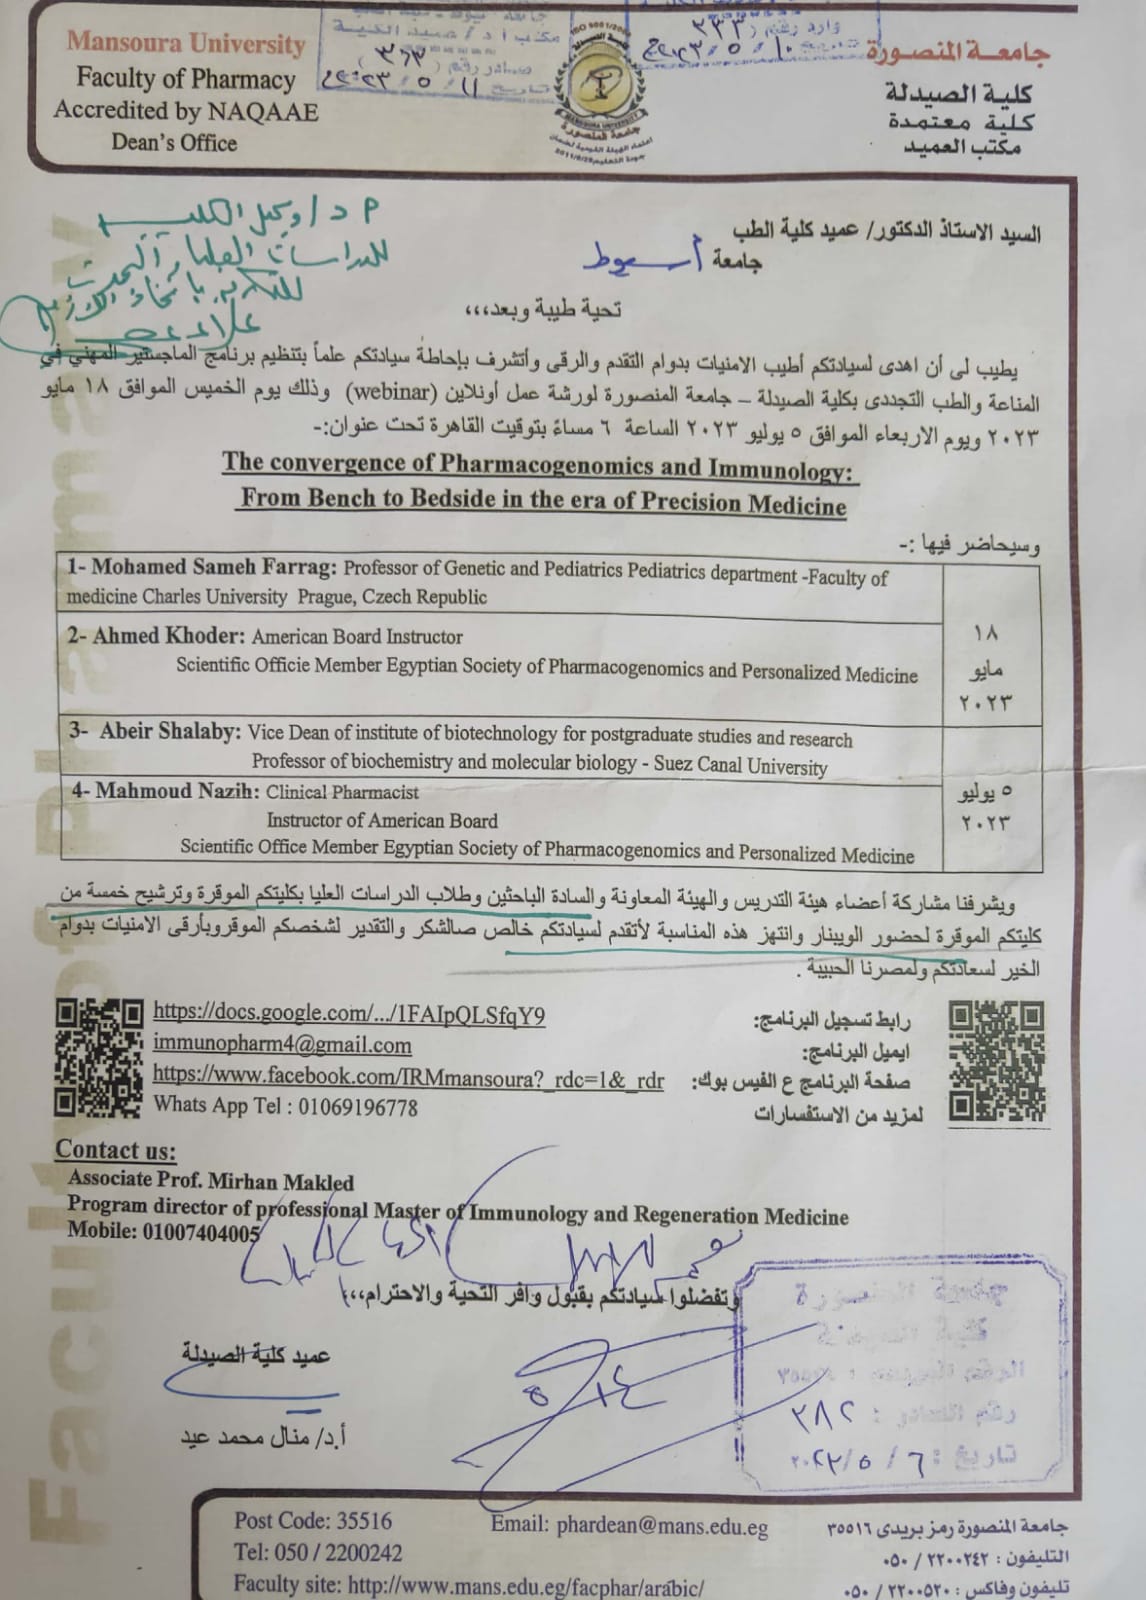 Mansoura University
Faculty of Pharmacy
Accredited by NAQAAE
Dean's Office
مكتب أ د / عميد الكلية
صادر رقم (٣٦٣)
تاريخ ١١ / ٥ / ٢٠٢٣
وارد رقم (٢٣٣
١٠ / ٥ / ٢٠٢٣
ISO 9001/2008
MANSOURA UNIVERSITY
جامعة المنصورة
جامعة المنصورة
كلية الصيدلة
كلية معتمدة
مكتب العميد
أ د / وكيل الكلية
للدراسات العليا و البحوث
السيد الاستاذ الدكتور/ عميد كلية الطب
جامعة أسيوط
تحية طيبة وبعد،،،
يطيب لى أن اهدى لسيادتكم أطيب الامنيات بدوام التقدم والرقى وأتشرف بإحاطة سيادتكم علماً بتنظيم برنامج الماجستير المهني في
المناعة والطب التجددى بكلية الصيدلة – جامعة المنصورة لورشة عمل أونلاين (webinar) وذلك يوم الخميس الموافق ١٨ مايو
٢٠٢٣ ويوم الاربعاء الموافق ٥ يوليو ٢٠٢٣ الساعة ٦ مساءً بتوقيت القاهرة تحت عنوان:-
The convergence of Pharmacogenomics and Immunology:
From Bench to Bedside in the era of Precision Medicine
وسيحاضر فيها :-
1- Mohamed Sameh Farrag: Professor of Genetic and Pediatrics Pediatrics department -Faculty of
medicine Charles University Prague, Czech Republic
2- Ahmed Khoder: American Board Instructor
Scientific Officie Member Egyptian Society of Pharmacogenomics and Personalized Medicine
١٨
مايو
٢٠٢٣
3- Abeir Shalaby: Vice Dean of institute of biotechnology for postgraduate studies and research
Professor of biochemistry and molecular biology - Suez Canal University
4- Mahmoud Nazih: Clinical Pharmacist
Instructor of American Board
Scientific Office Member Egyptian Society of Pharmacogenomics and Personalized Medicine
٥ يوليو
٢٠٢٣
ويشرفنا مشاركة أعضاء هيئة التدريس والهيئة المعاونة والسادة الباحثين وطلاب الدراسات العليا بكليتكم الموقرة وترشيح خمسة من
كليتكم الموقرة لحضور الويبنار وانتهز هذه المناسبة لأتقدم لسيادتكم خالص صالشكر والتقدير لشخصكم الموقروبأرقى الامنيات بدوام
الخير لسعادتكم ولمصرنا الحبيبة .
رابط تسجيل البرنامج: https://docs.google.com/.../1FAIpQLSfqY9
ايميل البرنامج: immunopharm4@gmail.com
صفحة البرنامج ع الفيس بوك: https://www.facebook.com/IRMmansoura?_rdc=1&_rdr
لمزيد من الاستفسارات Whats App Tel : 01069196778
Contact us:
Associate Prof. Mirhan Makled
Program director of professional Master of Immunology and Regeneration Medicine
Mobile: 01007404005
وتفضلوا سيادتكم بقبول وافر التحية والاحترام،،،
عميد كلية الصيدلة
أ.د/ منال محمد عيد
٥/١٤
رقم الصادر : ٣٨٢
تاريخ : ٦ / ٥ / ٢٠٢٣
Faculty of Pharmacy
Post Code: 35516
Tel: 050 / 2200242
Faculty site: http://www.mans.edu.eg/facphar/arabic/
Email: phardean@mans.edu.eg
جامعة المنصورة رمز بريدى ٣٥٥١٦
التليفون : ٢٢٠٠٢٤٢ / ٠٥٠
تليفون وفاكس : ٢٢٠٠٥٢٠ / ٠٥٠